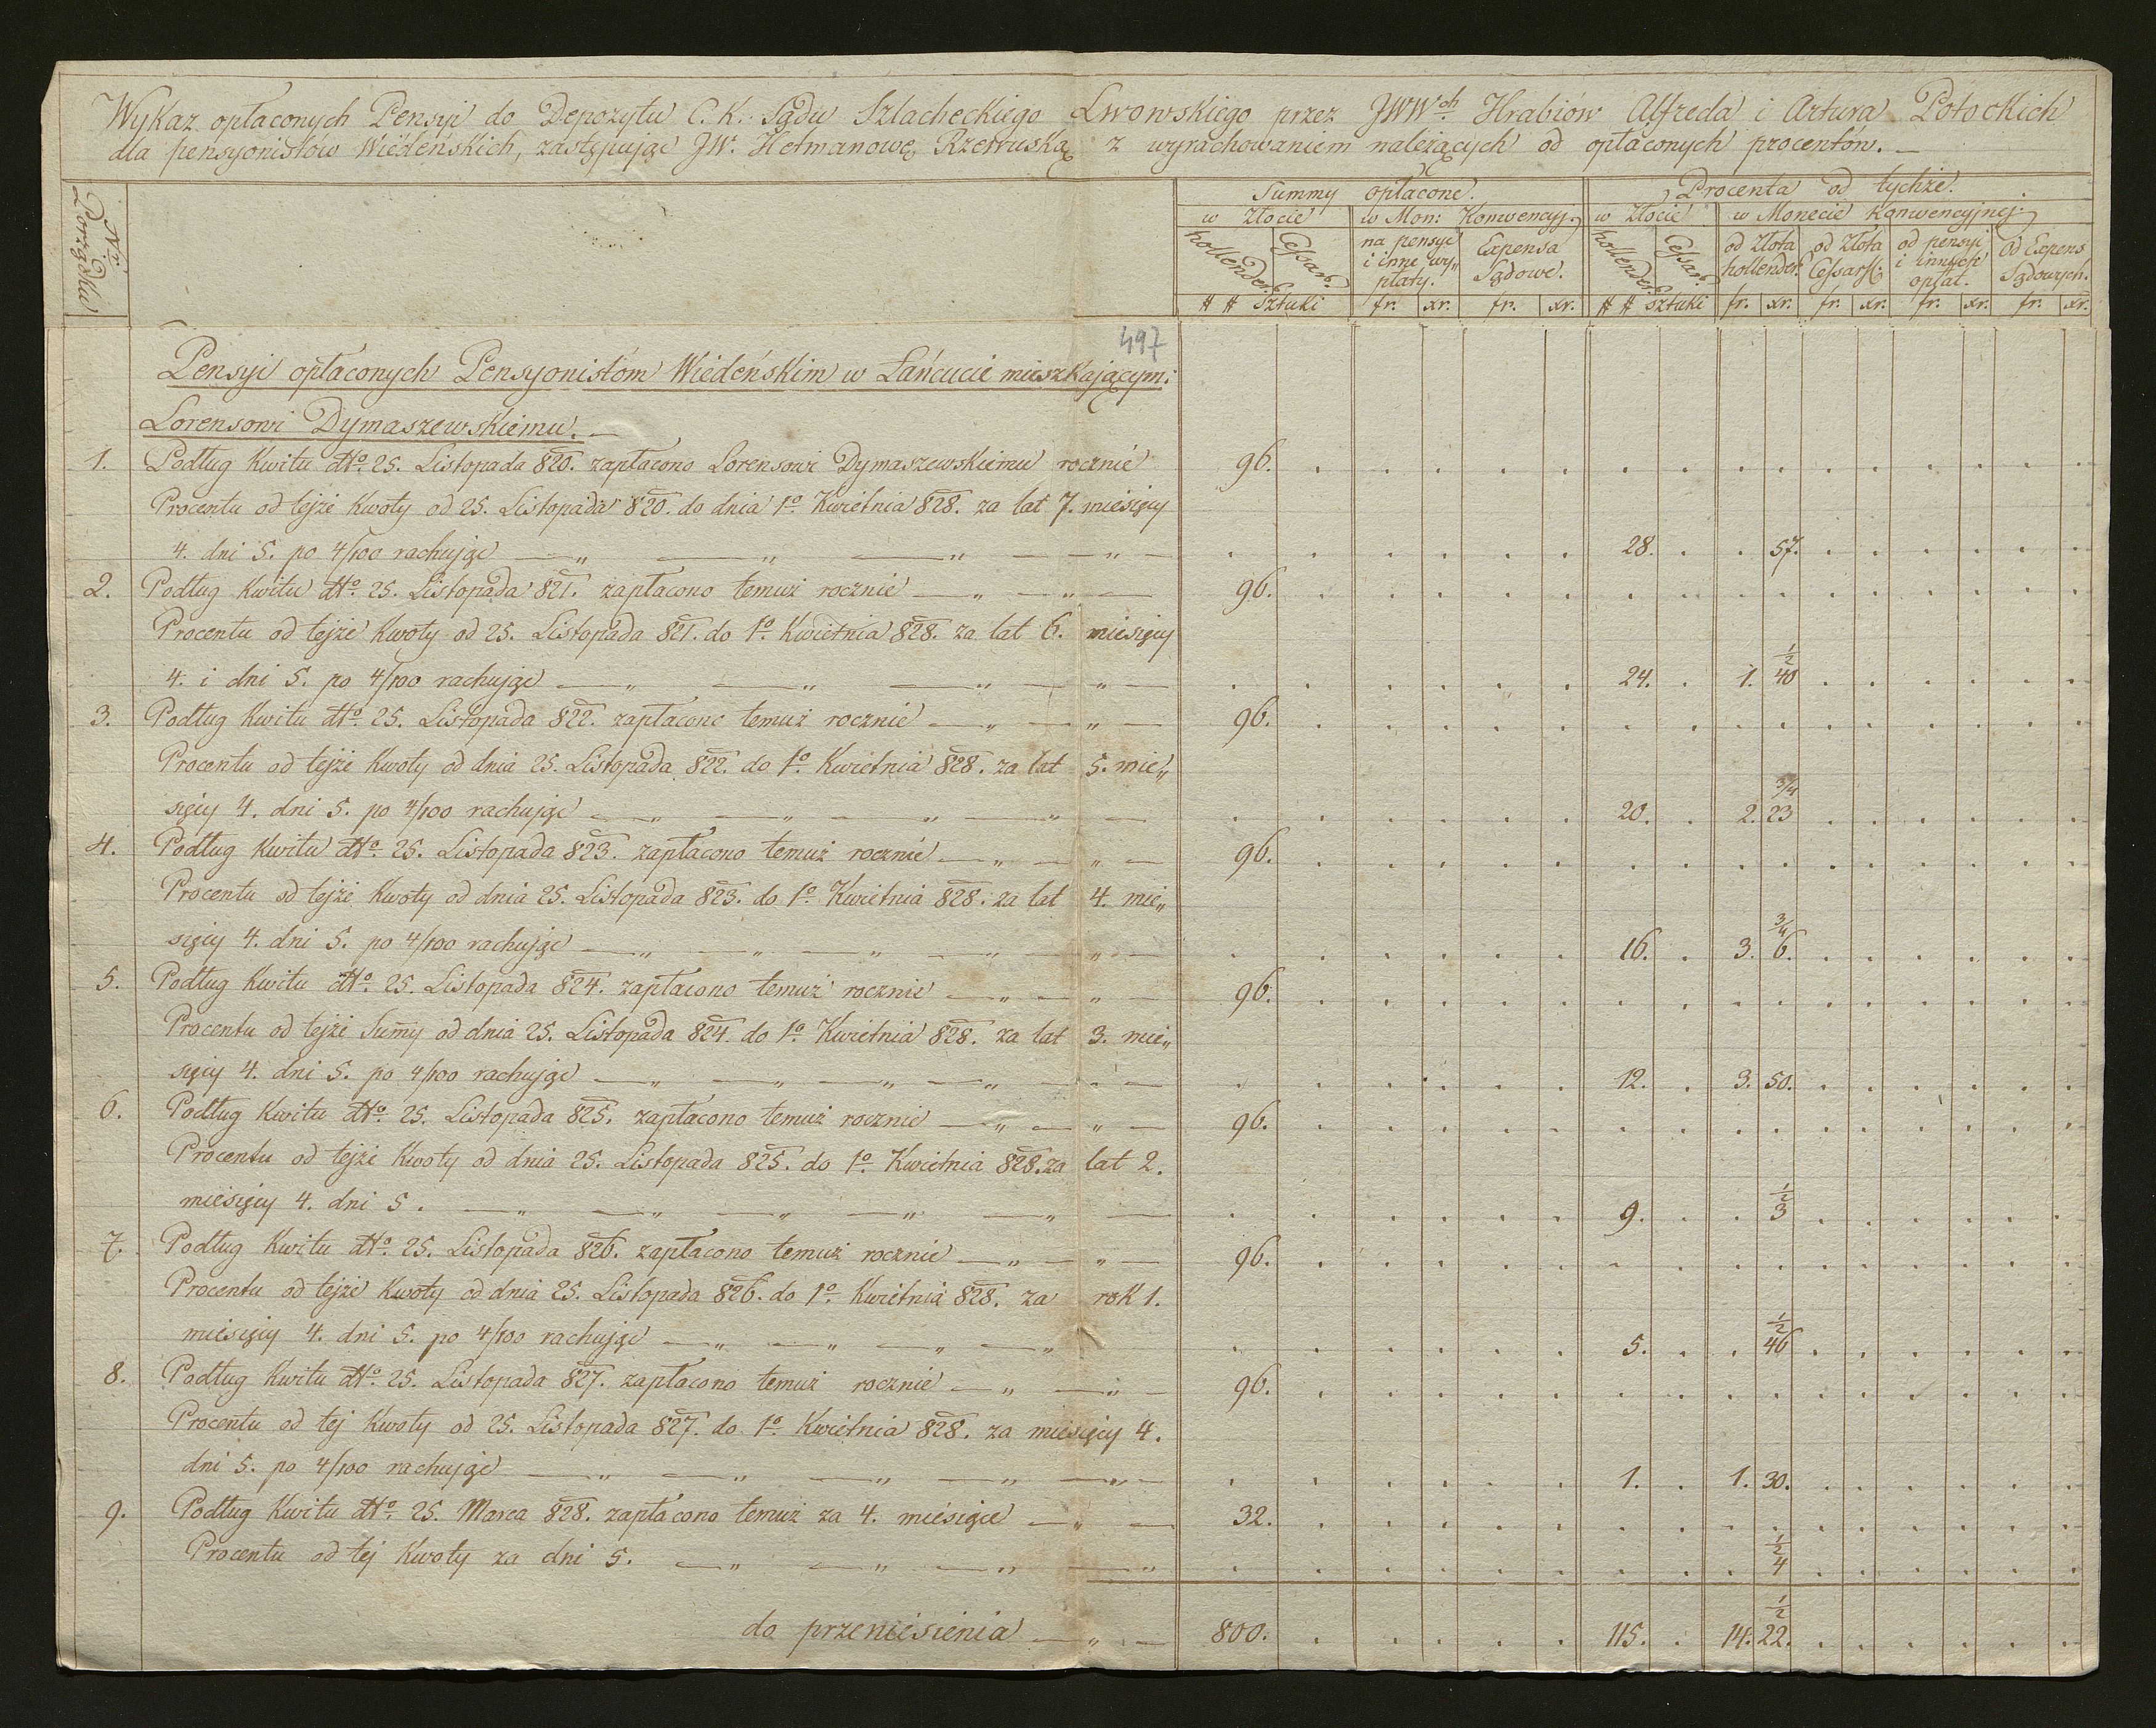 Wykaz opłaconych Pensyi do Depozytu C. K. Sądu Szlacheckiego Lwowskiego przez JWWch. Hrabiów Alfreda i Artura Potockich
dla pensyonistów Wiédeńskich, zastępując JW. Hetmanowę Rzewuską z wyrachowaniem należących od opłaconych procentów. —
Nr. Porządku
Summy opłacone.
Procenta od tychże.
w Złocie
w Mon: Konwencyj:
w Złocie
w Monecie Konwencyjnej
hollender.
Cessar.
na pensyi i inne wy„ płaty.
Expensa Sądowe.
hollender.
Cessar.
od Złota hollender.
od Złota Cessarsk:
od pensyi i innych opłat.
Od Expens Sądowych.
# # Sztuki fr. xr. fr. xr. # # Sztuki fr. xr. fr. xr. fr. xr. fr. xr.
497
Pensyi opłaconych Pensyonistóm Wiédeńskim w Łańcucie mieszkającym:
Lorensowi Dymaszewskiemu. —
1. Podług Kwitu dtto. 25. Listopada 820. zapłacono Lorensowi Dymaszewskiemu rocznie 96.
Procentu od tejże Kwoty od 25. Listopada 820. do dnia 1o. Kwietnia 828. za lat 7. miesięcy
4. dni 5. po 4/100 rachując — „ — „ — „ — „ — 28. 57.
2. Podług Kwitu dtto. 25. Listopada 821. zapłacono temuż rocznie — „ — „ — 96.
Procentu od tejże Kwoty od 25. Listopada 821. do 1o. Kwietnia 828. za lat 6. miesięcy
4. i dni 5. po 4/100 rachując — „ — „ — „ — „ — 24. 1. 40 1/2
3. Podług Kwitu dtto. 25. Listopada 822. zapłacono temuż rocznie — „ — „ — 96.
Procentu od tejże Kwoty od dnia 25. Listopada 822. do 1o. Kwietnia 828. za lat 5. mie„
sięcy 4. dni 5. po 4/100 rachując — „ — „ — „ — „ — 20. 2. 23 3/4
4. Podług Kwitu dtto. 25. Listopada 823. zapłacono temuż rocznie — „ — „ — 96.
Procentu od tejże Kwoty od dnia 25. Listopada 823. do 1o. Kwietnia 828. za lat 4. mie„
sięcy 4. dni 5. po 4/100 rachując — „ — „ — „ — „ — „ — 16. 3. 6. 3/4
5. Podług Kwitu dtto. 25. Listopada 824. zapłacono temuż rocznie — „ — „ — 96.
Procentu od tejże Sum̄y od dnia 25. Listopada 824. do 1o. Kwietnia 828. za lat 3. mie„
sięcy 4. dni 5. po 4/100 rachując — „ — „ — „ — „ — „ — 12. 3. 50.
6. Podług Kwitu dtto. 25. Listopada 825. zapłacono temuż rocznie — „ — „ — 96.
Procentu od tejże Kwoty od dnia 25. Listopada 825. do 1o. Kwietnia 828. za lat 2.
miesięcy 4. dni 5. — „ — „ — „ — „ — „ — 9. 3 1/2
7. Podług Kwitu dtto. 25. Listopada 826. zapłacono temuż rocznie — „ — „ — 96.
Procentu od tejże Kwoty od dnia 25. Listopada 826. do 1o. Kwietnia 828. za rok 1.
miesięcy 4. dni 5. po 4/100 rachując — „ — „ — „ — „ 5. 46 1/2
8. Podług Kwitu dtto. 25. Listopada 827. zapłacono temuż rocznie — „ — „ — 96.
Procentu od tej Kwoty od 25. Listopada 827. do 1o. Kwietnia 828. za miesięcy 4.
dni 5. po 4/100 rachując — „ — „ — „ — „ — „ — 1. 1. 30.
9. Podług Kwitu dtto. 25. Marca 828. zapłacono temuż za 4. miesiące — „ — 32.
Procentu od tej Kwoty za dni 5. — „ — „ — „ — „ 4 1/2
do przeniesienia — „ — 800. 115. 14. 22. 1/2